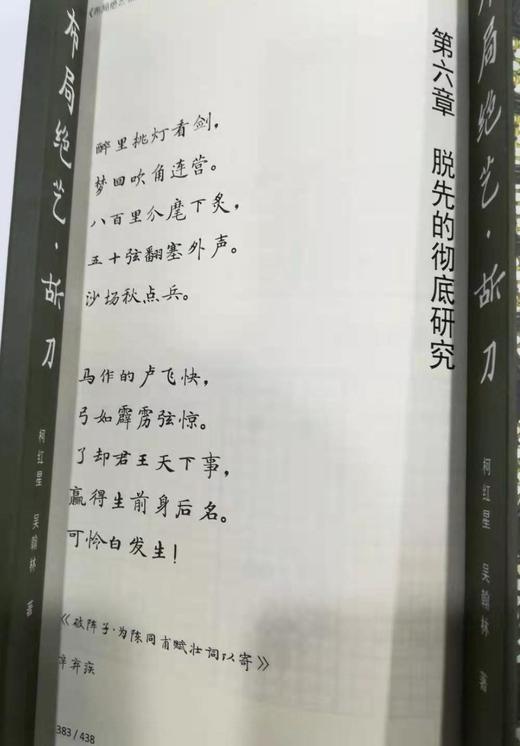 第六章 脱先的彻底研究
醉里挑灯看剑，
梦回吹角连营。
八百里分麾下炙，
五十弦翻塞外声。
沙场秋点兵。
马作的卢飞快，
弓如霹雳弦惊。
了却君王天下事，
赢得生前身后名。
可怜白发生！
《破阵子·为陈同甫赋壮词以寄》
辛弃疾
383 / 438
布局绝艺·斩刀
柯红星 吴翰林 著
局绝艺·斩刀
柯红星 吴翰林 著